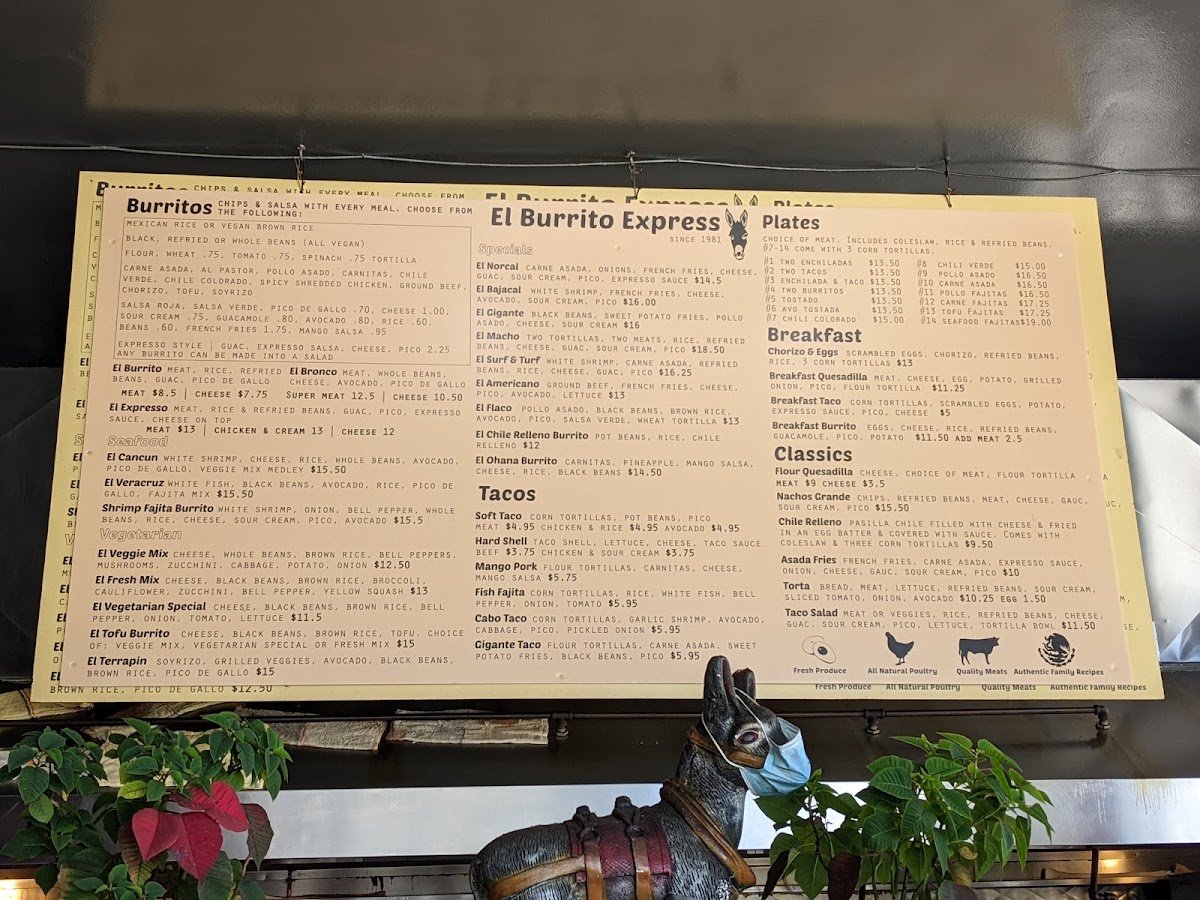 Burritos CHIPS & SALSA WITH EVERY MEAL. CHOOSE FROM
THE FOLLOWING:
MEXICAN RICE OR VEGAN BROWN RICE
BLACK, REFRIED OR WHOLE BEANS (ALL VEGAN)
FLOUR, WHEAT .75, TOMATO .75, SPINACH .75 TORTILLA
CARNE ASADA, AL PASTOR, POLLO ASADO, CARNITAS, CHILE
VERDE, CHILE COLORADO, SPICY SHREDDED CHICKEN, GROUND BEEF,
CHORIZO, TOFU, SOYRIZO
SALSA ROJA, SALSA VERDE, PICO DE GALLO .70, CHEESE 1.00,
SOUR CREAM .75, GUACAMOLE .80, AVOCADO .80, RICE .60,
BEANS .60, FRENCH FRIES 1.75, MANGO SALSA .95
EXPRESSO STYLE | GUAC, EXPRESSO SALSA, CHEESE, PICO 2.25
ANY BURRITO CAN BE MADE INTO A SALAD
El Burrito MEAT, RICE, REFRIED
BEANS, GUAC, PICO DE GALLO
MEAT $8.5 | CHEESE $7.75
El Bronco MEAT, WHOLE BEANS,
CHEESE, AVOCADO, PICO DE GALLO
SUPER MEAT 12.5 | CHEESE 10.50
El Expresso MEAT, RICE & REFRIED BEANS, GUAC, PICO, EXPRESSO
SAUCE, CHEESE ON TOP
MEAT $13 | CHICKEN & CREAM 13 | CHEESE 12
Seafood
El Cancun WHITE SHRIMP, CHEESE, RICE, WHOLE BEANS, AVOCADO,
PICO DE GALLO, VEGGIE MIX MEDLEY $15.50
El Veracruz WHITE FISH, BLACK BEANS, AVOCADO, RICE, PICO DE
GALLO, FAJITA MIX $15.50
Shrimp Fajita Burrito WHITE SHRIMP, ONION, BELL PEPPER, WHOLE
BEANS, RICE, CHEESE, SOUR CREAM, PICO, AVOCADO $15.5
Vegetarian
El Veggie Mix CHEESE, WHOLE BEANS, BROWN RICE, BELL PEPPERS,
MUSHROOMS, ZUCCHINI, CABBAGE, POTATO, ONION $12.50
El Fresh Mix CHEESE, BLACK BEANS, BROWN RICE, BROCCOLI,
CAULIFLOWER, ZUCCHINI, BELL PEPPER, YELLOW SQUASH $13
El Vegetarian Special CHEESE, BLACK BEANS, BROWN RICE, BELL
PEPPER, ONION, TOMATO, LETTUCE $11.5
El Tofu Burrito CHEESE, BLACK BEANS, BROWN RICE, TOFU, CHOICE
OF: VEGGIE MIX, VEGETARIAN SPECIAL OR FRESH MIX $15
El Terrapin SOYRIZO, GRILLED VEGGIES, AVOCADO, BLACK BEANS,
BROWN RICE, PICO DE GALLO $15
El Burrito Express
SINCE 1981
Specials
El Norcal CARNE ASADA, ONIONS, FRENCH FRIES, CHEESE,
GUAC, SOUR CREAM, PICO, EXPRESSO SAUCE $14.5
El Bajacal WHITE SHRIMP, FRENCH FRIES, CHEESE,
AVOCADO, SOUR CREAM, PICO $16.00
El Gigante BLACK BEANS, SWEET POTATO FRIES, POLLO
ASADO, CHEESE, SOUR CREAM $16
El Macho TWO TORTILLAS, TWO MEATS, RICE, REFRIED
BEANS, CHEESE, GUAC, SOUR CREAM, PICO $18.50
El Surf & Turf WHITE SHRIMP, CARNE ASADA, REFRIED
BEANS, RICE, CHEESE, GUAC, PICO $16.25
El Americano GROUND BEEF, FRENCH FRIES, CHEESE,
PICO, AVOCADO, LETTUCE $13
El Flaco POLLO ASADO, BLACK BEANS, BROWN RICE,
AVOCADO, PICO, SALSA VERDE, WHEAT TORTILLA $13
El Chile Relleno Burrito POT BEANS, RICE, CHILE
RELLENO $12
El Ohana Burrito CARNITAS, PINEAPPLE, MANGO SALSA,
CHEESE, RICE, BLACK BEANS $14.50
Tacos
Soft Taco CORN TORTILLAS, POT BEANS, PICO
MEAT $4.95 CHICKEN & RICE $4.95 AVOCADO $4.95
Hard Shell TACO SHELL, LETTUCE, CHEESE, TACO SAUCE
BEEF $3.75 CHICKEN & SOUR CREAM $3.75
Mango Pork FLOUR TORTILLAS, CARNITAS, CHEESE,
MANGO SALSA $5.75
Fish Fajita CORN TORTILLAS, RICE, WHITE FISH, BELL
PEPPER, ONION, TOMATO $5.95
Cabo Taco CORN TORTILLAS, GARLIC SHRIMP, AVOCADO,
CABBAGE, PICO, PICKLED ONION $5.95
Gigante Taco FLOUR TORTILLAS, CARNE ASADA, SWEET
POTATO FRIES, BLACK BEANS, PICO $5.95
Plates
CHOICE OF MEAT. INCLUDES COLESLAW, RICE & REFRIED BEANS.
#7-14 COME WITH 3 CORN TORTILLAS.
#1 TWO ENCHILADAS $13.50
#2 TWO TACOS $13.50
#3 ENCHILADA & TACO $13.50
#4 TWO BURRITOS $13.50
#5 TOSTADO $13.50
#6 AVO TOSTADA $13.50
#7 CHILI COLORADO $15.00
#8 CHILI VERDE $15.00
#9 POLLO ASADO $16.50
#10 CARNE ASADA $16.50
#11 POLLO FAJITAS $16.50
#12 CARNE FAJITAS $17.25
#13 TOFU FAJITAS $17.25
#14 SEAFOOD FAJITAS $19.00
Breakfast
Chorizo & Eggs SCRAMBLED EGGS, CHORIZO, REFRIED BEANS,
RICE, 3 CORN TORTILLAS $13
Breakfast Quesadilla MEAT, CHEESE, EGG, POTATO, GRILLED
ONION, PICO, FLOUR TORTILLA $11.25
Breakfast Taco CORN TORTILLAS, SCRAMBLED EGGS, POTATO,
EXPRESSO SAUCE, PICO, CHEESE $5
Breakfast Burrito EGGS, CHEESE, RICE, REFRIED BEANS,
GUACAMOLE, PICO, POTATO $11.50 ADD MEAT 2.5
Classics
Flour Quesadilla CHEESE, CHOICE OF MEAT, FLOUR TORTILLA
MEAT $9 CHEESE $3.5
Nachos Grande CHIPS, REFRIED BEANS, MEAT, CHEESE, GAUC,
SOUR CREAM, PICO $15.50
Chile Relleno PASILLA CHILE FILLED WITH CHEESE & FRIED
IN AN EGG BATTER & COVERED WITH SAUCE. COMES WITH
COLESLAW & THREE CORN TORTILLAS $9.50
Asada Fries FRENCH FRIES, CARNE ASADA, EXPRESSO SAUCE,
ONION, CHEESE, GAUC, SOUR CREAM, PICO $10
Torta BREAD, MEAT, LETTUCE, REFRIED BEANS, SOUR CREAM,
SLICED TOMATO, ONION, AVOCADO $10.25 EGG 1.50
Taco Salad MEAT OR VEGGIES, RICE, REFRIED BEANS, CHEESE,
GUAC, SOUR CREAM, PICO, LETTUCE, TORTILLA BOWL $11.50
Fresh Produce All Natural Poultry Quality Meats Authentic Family Recipes
BROWN RICE, PICO DE GALLO $12.50
Fresh Produce All Natural Poultry Quality Meats Authentic Family Recipes